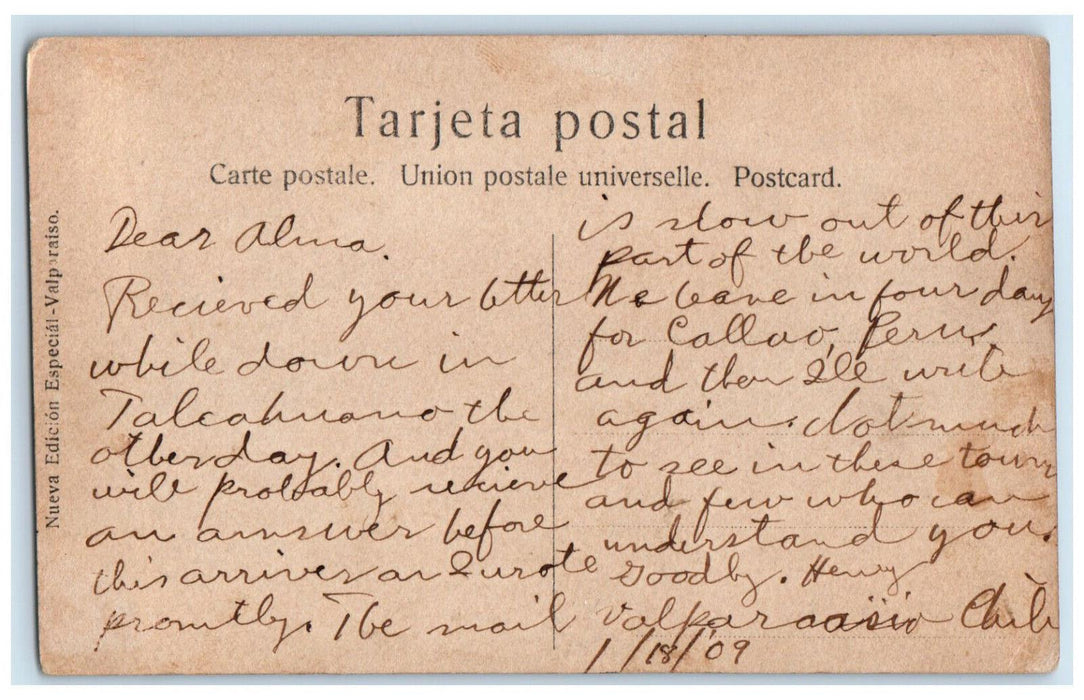 Tarjeta postal
Carte postale. Union postale universelle. Postcard.
Nueva Edición Especiál-Valparaiso.
Dear Alma.
Recieved your letter
while down in
Talcahuano the
other day. And you
will probably recieve
an answer before
this arrives as I wrote
promtly. The mail
is slow out of this
part of the world.
We leave in four days
for Callao, Peru,
and then Ill write
again. Not much
to see in these towns
and few who can
understand you.
Goodby. Henry
Valparaaisio Chili
1/18/09